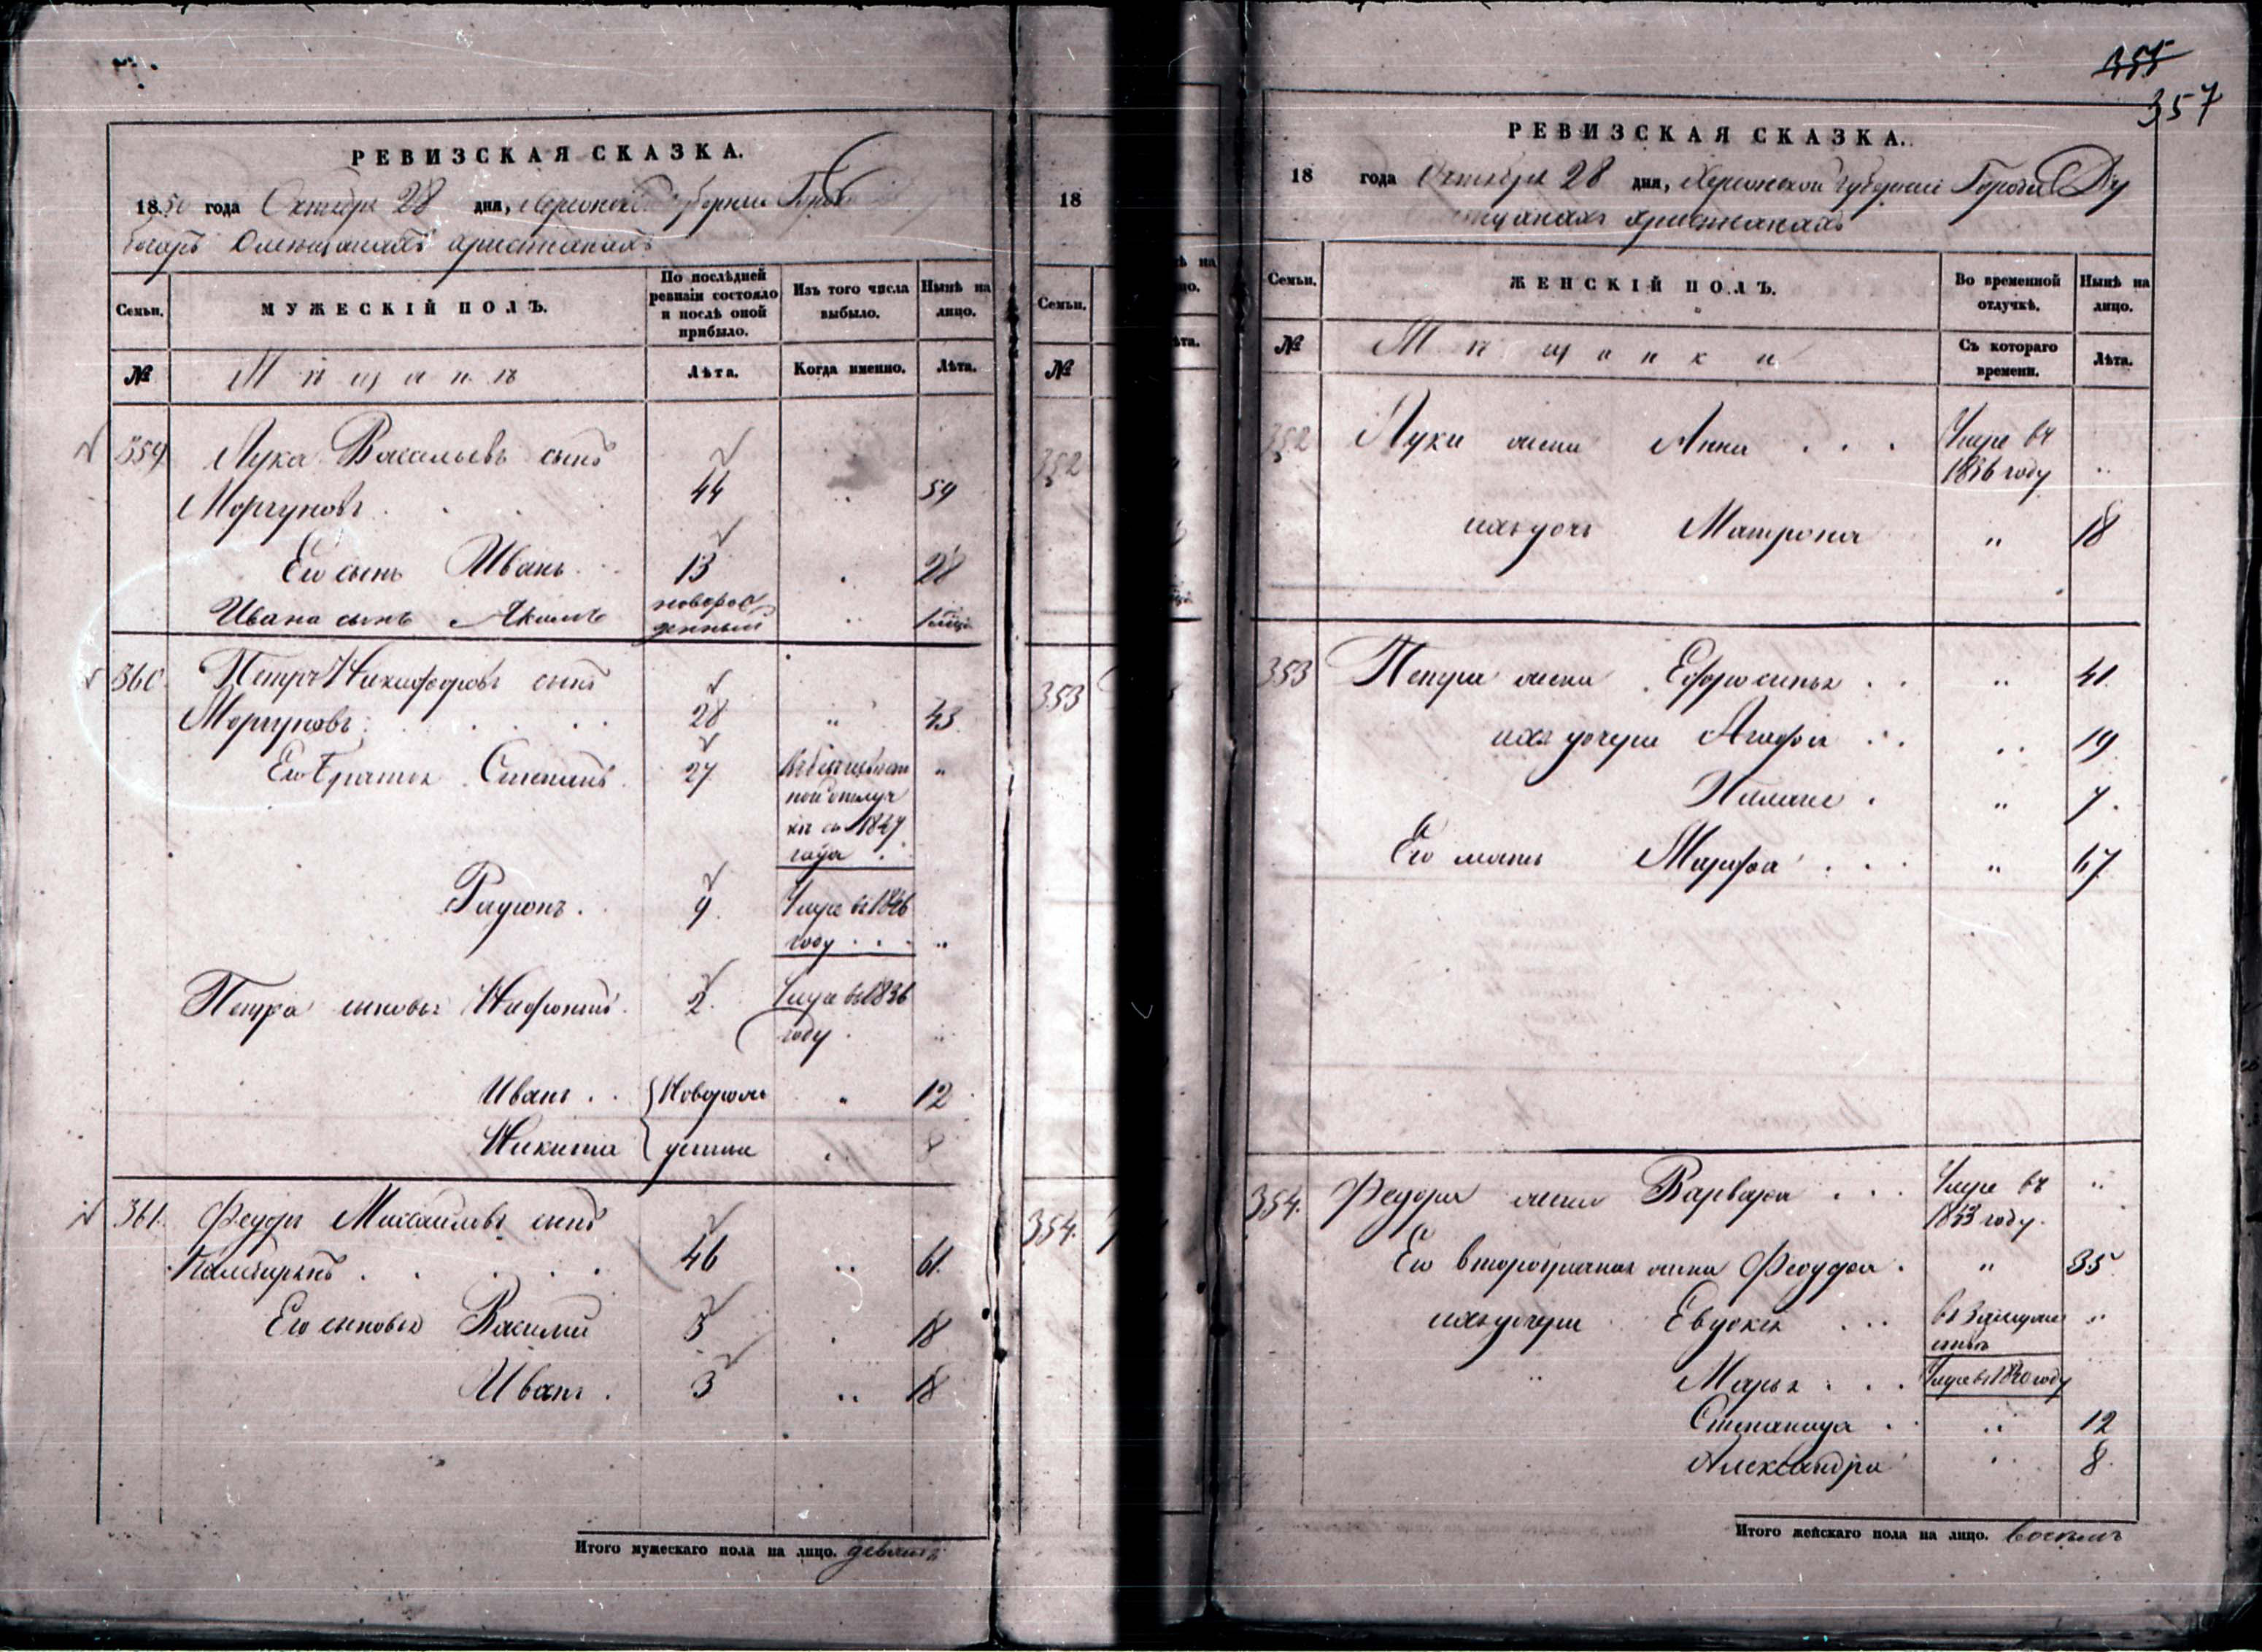 РЕВИЗСКАЯ СКАЗКА.
1850 года Октября 28 дня, Херсонской Губернии Города
Оместщанахъ христіанахъ
Семьи.
МУЖЕСКІЙ ПОЛЪ.
По послѣдней ревизіи состояло и послѣ оной прибыло.
Изъ того числа выбыло.
Нынѣ на лицо.
№
Мѣщанъ
Лѣта.
Когда именно.
Лѣта.
359 Лука Васильевъ сынъ
Моргуновъ . . . 44 „ 59
Его сынъ Иванъ . . 13 . 28
Ивана сынъ Акимъ новорожденный „
360 Петръ Никифоровъ сынъ
Моргуновъ . . . . 28 „ 43
Его братья Степанъ . 27 „
ной отлуч
кѣ съ 1847
года .
Родіонъ . 9. Умре въ 1846
году . . . „
Петра сыновья Нифонтій . 2. Умре въ 1836
году . „
Иванъ . . Новорож „ 12
Никита денные „ 8
361. Федоръ Михайловъ сынъ
. . . . . 46 „ 61.
Его сыновья Василий 3 . 18
Иванъ . 3 „ 18
Итого мужескаго пола на лицо. девять
18
Семьи.
№
352
353
354.
355
357
РЕВИЗСКАЯ СКАЗКА.
18 года Октября 28 дня, Херсонской Губерніи Города Ду
христіанахъ
Семьи.
ЖЕНСКІЙ ПОЛЪ.
Во временной отлучкѣ.
Нынѣ на лицо.
№
Мѣщанки
Съ котораго времени.
Лѣта.
352 Луки жена Анна . . . Умре въ
1836 году „
ихъ дочь Матрона „ 18
353 Петра жена Ефросинья . . „ 41.
ихъ дочери Агафья . . „ 19
Пелагея . „ 7.
Его мать Марфа . . . „ 67
354. Федора жена Варвара . . . Умре въ „
1833 году.
Его второбрачная жена Феодора . „ 35
ихъ дочери Евдокія . . . въ замуже „
ствѣ
Марья . . . Умре въ 1840 году
Степанида . „ 12
Александра „ 8.
Итого женскаго пола на лицо. восемь